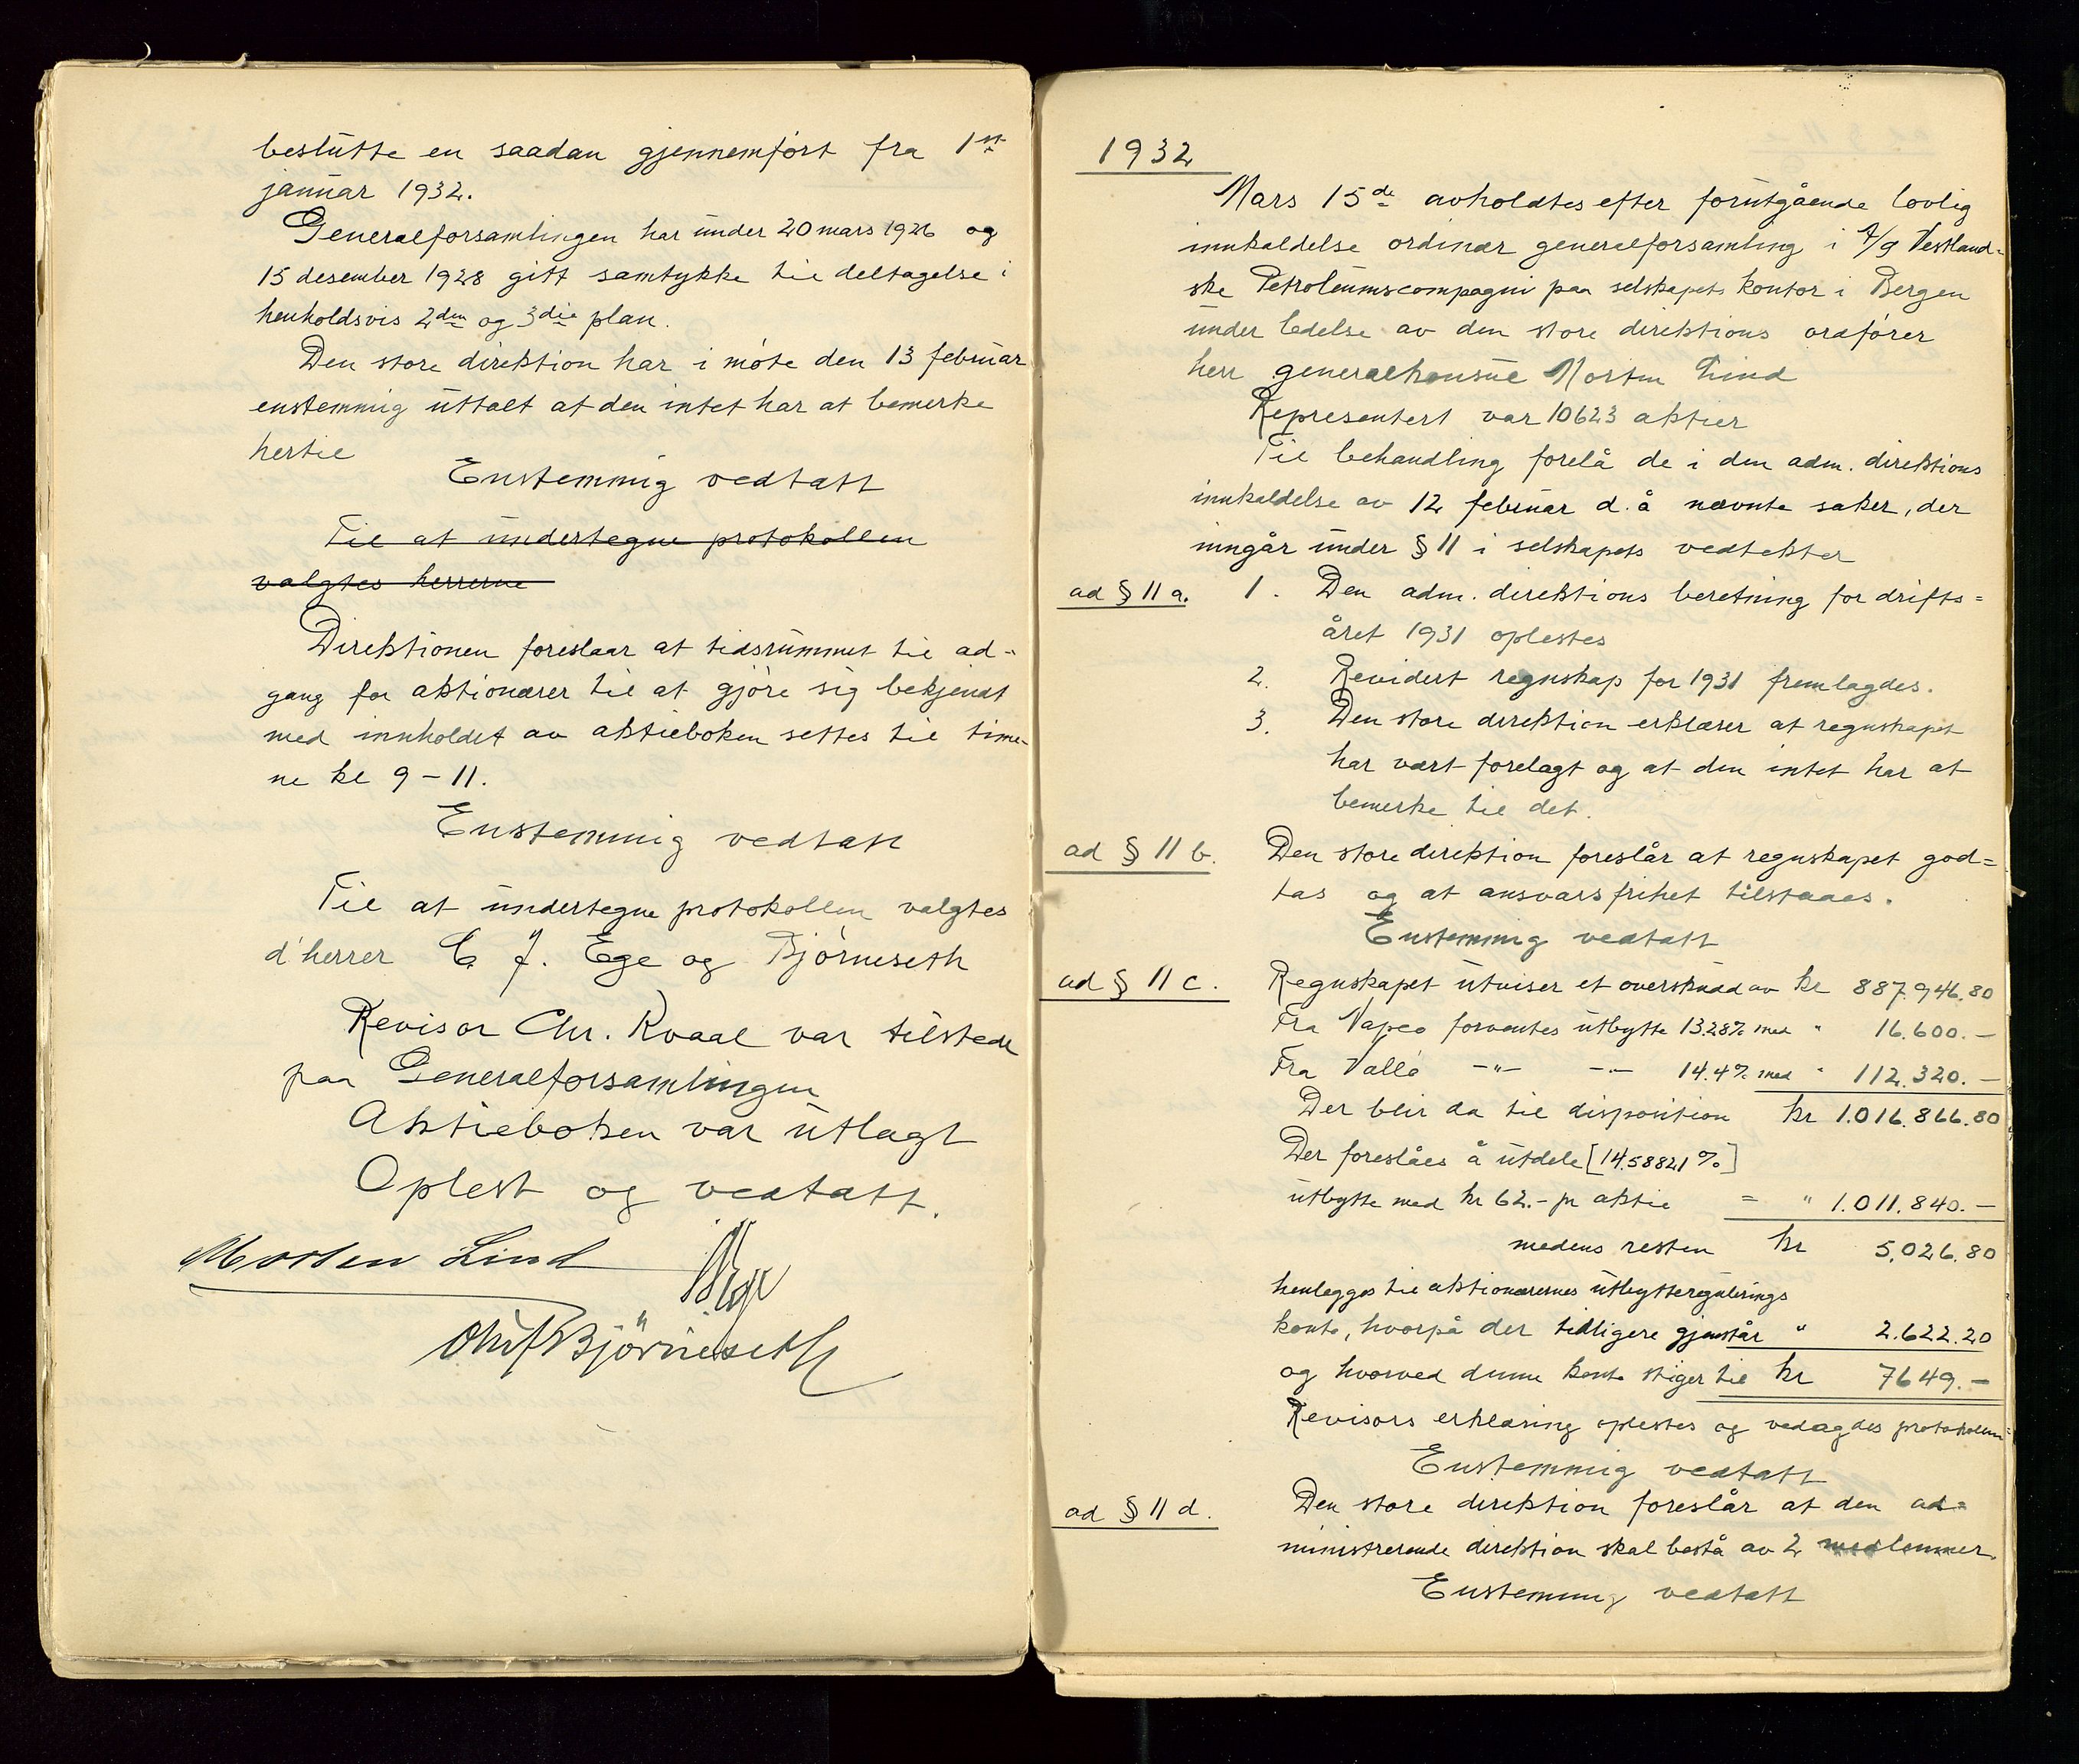 beslutte en saadan gjennemført fra 1ste
januar 1932.
Generalforsamlingen har under 20 mars 1926 og
15 desember 1928 gitt samtykke til deltagelse i
henholdsvis 2den og 3die plan.
Den store direktion har i møte den 13 februar
enstemmig uttalt at den intet har at bemerke
hertil
Enstemmig vedtatt
Til at undertegne protokollen
valgtes herrerne
Direktionen foreslaar at tidsrummet til ad-
gang for aktionærer til at gjøre sig bekjendt
med innholdet av aktieboken settes til time-
ne kl 9 - 11.
Enstemmig vedtatt
Til at undertegne protokollen valgtes
d'herrer C. J. Ege og Bjørneseth
Revisor Chr. Kvaal var tilstede
paa Generalforsamlingen
Aktieboken var utlagt
Oplest og vedtatt.
Morten Lind
Ege
Oluf Bjørneseth
1932
Mars 15de avholdtes efter forutgående lovlig
innkaldelse ordinær generalforsamling i A/S Vestland=
ske Petroleumscompagni paa selskapets kontor i Bergen
under ledelse av den store direktions ordfører
herr generalkonsul Morten Lind
Representert var 10623 aktier
Til behandling forelå de i den adm. direktions
innkaldelse av 12 februar d.å nævnte saker, der
inngår under § 11 i selskapets vedtekter
ad § 11 a. 1. Den adm. direktions beretning for drifts=
året 1931 oplestes
2. Revidert regnskap for 1931 fremlagdes.
3. Den store direktion erklærer at regnskapet
har vært forelagt og at den intet har at
bemerke til det.
ad § 11 b. Den store direktion foreslår at regnskapet god=
tas og at ansvarsfrihet tilstaaes.
Enstemmig vedtatt
ad § 11 c. Regnskapet utviser et overskudd av kr 887.946.80
Fra Vapco forventes utbytte 13.28% med " 16.600.—
Fra Vallø —"— —"— 14.4% med " 112.320.—
Der blir da til disposition kr 1.016.866.80
Der foreslåes å utdele [14.58821%]
utbytte med kr 62.- pr aktie = " 1.011.840.—
medens resten kr 5.026.80
henlegges til aktionærernes utbytteregulerings
konto, hvorpå der tidligere gjenstår " 2.622.20
og hvorved denne konto stiger til kr 7649.—
Revisors erklæring oplestes og vedlagdes protokollen=
Enstemmig vedtatt
ad § 11 d. Den store direktion foreslår at den ad=
ministrerende direktion skal bestå av 2 medlemmer.
Enstemmig vedtatt